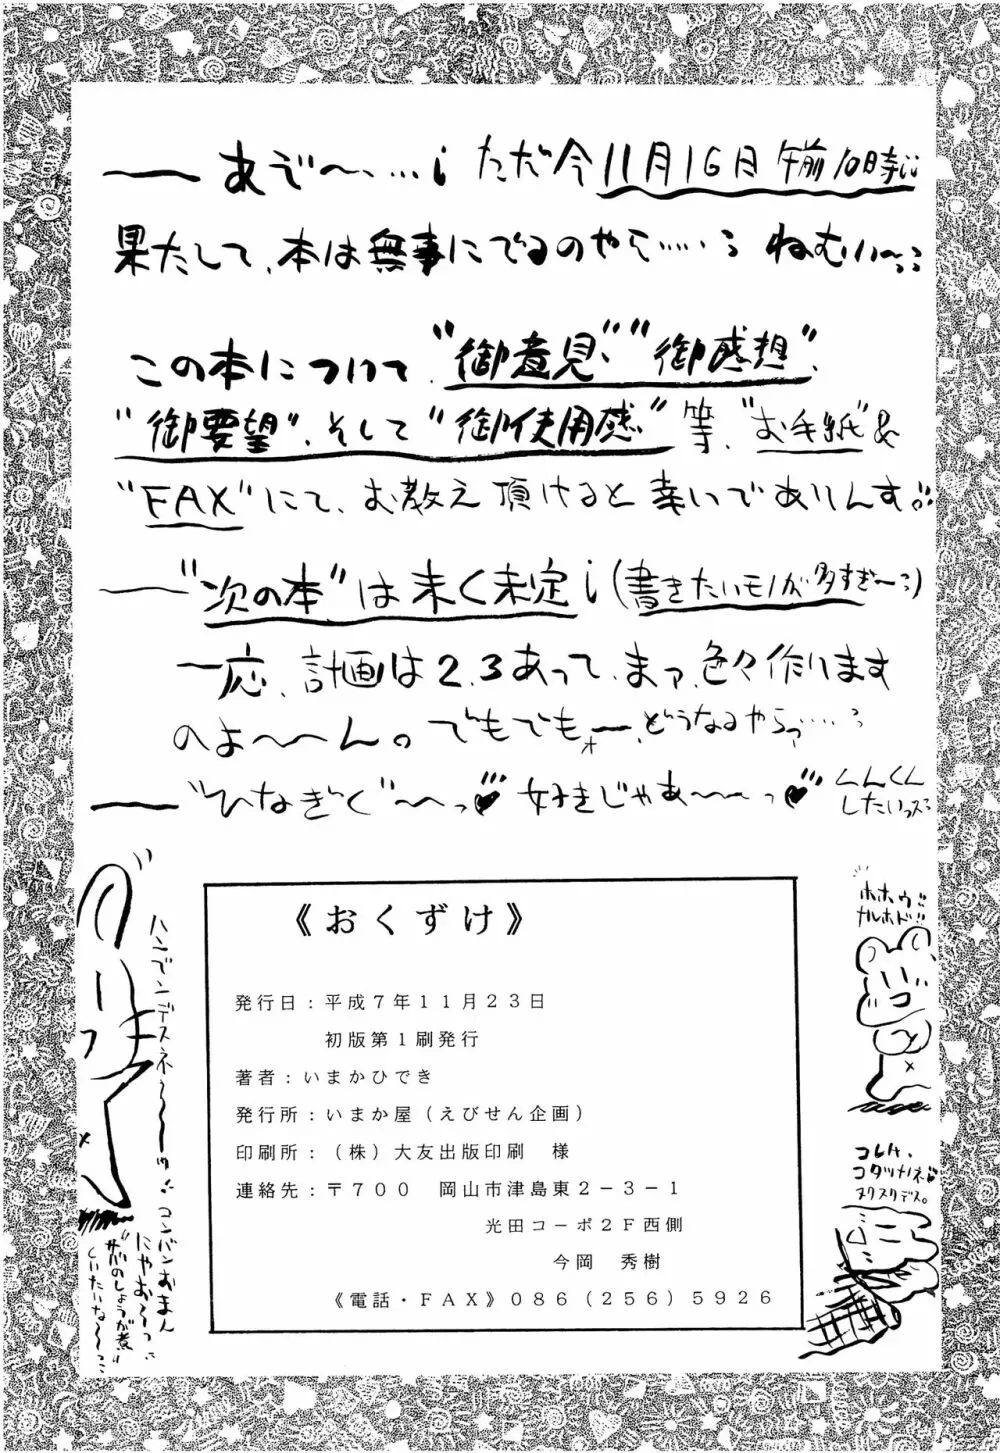 ― あぞ～、…！ ただ今11月16日 午前10時!!
果たして、本は無事にでるのやら……？ ねむい～っ
この本について、“御意見”、“御感想”、
“御要望”、そして“御使用感”等、“お手紙”&
“FAX”にて、お教え頂けると幸いでありんす。
― “次の本”は未く未定！(書きたいモノが多すぎ～)
一応、計画は2、3あって、まァ、色々作ります
のよ～～ん。でもでもォー、どうなるやらっ……？
― “ひなぎく”～っ♥ 好きじゃあ～～っ♥ くんくん
したいっス
ハンデンデスネ～
コンバンおまん
にゃお～っ
したいな～っ
ホホゥ!!
ナルホド!!
コレハ、
コタツナノネ♥
ヌクヌクデス。
《おくずけ》
発行日：平成7年11月23日
初版第1刷発行
著者：いまかひでき
発行所：いまか屋（えびせん企画）
印刷所：（株）大友出版印刷 様
連絡先：〒700 岡山市津島東2－3－1
光田コーポ2F西側
今岡 秀樹
《電話・FAX》086（256）5926